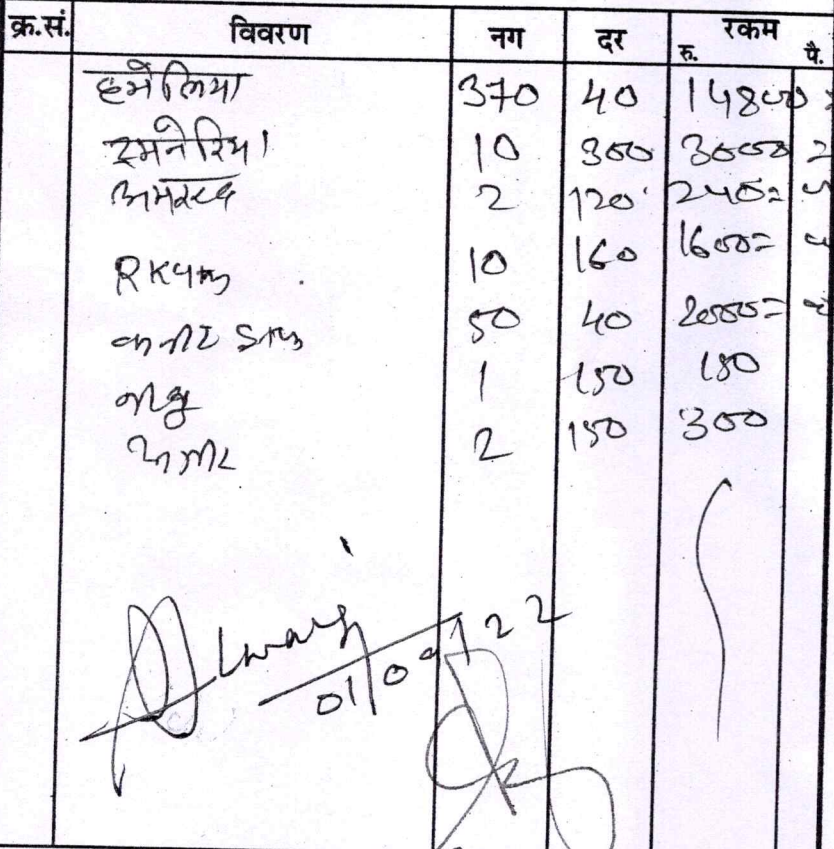 क्र.सं. विवरण नग दर रकम
रु. पै.
हमेलिया 370 40 14800
इमनेरिया 10 300 3000=
अमरूद 2 120 240=
RK पाम 10 160 1600=
कनीर डाफ 50 40 2000=
1 150 150
2 150 300
01/09/22